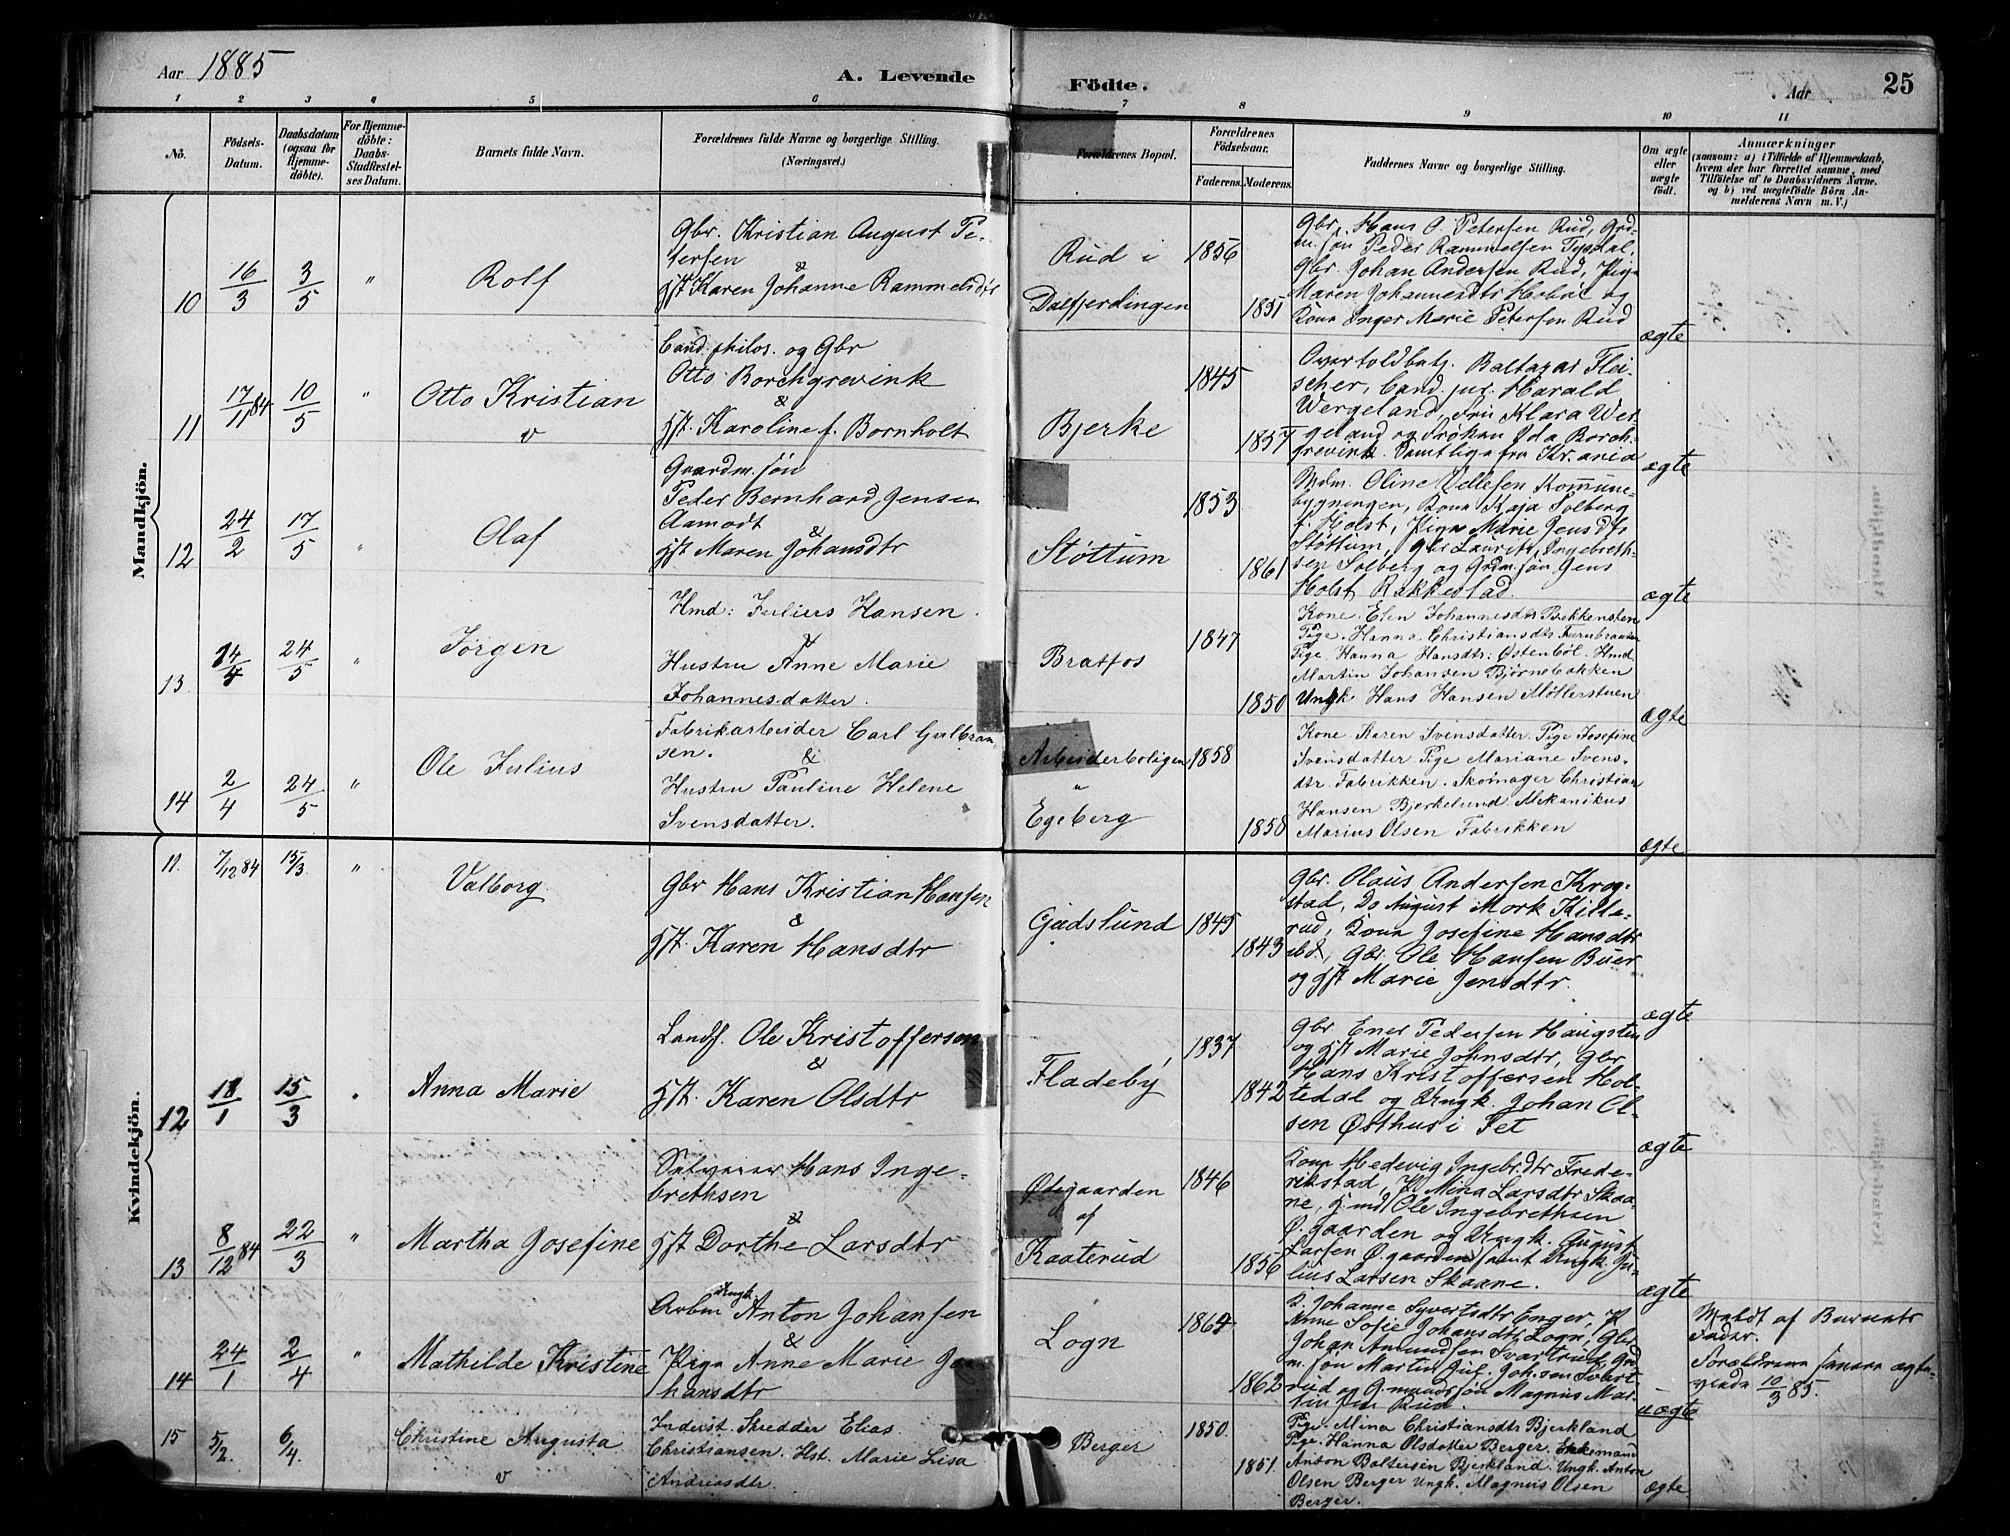 Aar 1885
A. Levende
Födte.
Aar
25
1 2 3 4 5 6 7 8 9 10 11
No.
Födsels-
Datum.
Daabsdatum
(ogsaa for
Hjemme-
döbte).
For Hjemme-
döbte:
Daabs-
Stadfestel-
ses Datum.
Barnets fulde Navn.
Forældrenes fulde Navne og borgerlige Stilling.
(Næringsvei.)
Forældrenes Bopæl.
Forældrenes
Födselsaar.
Faderens. Moderens.
Faddernes Navne og borgerlige Stilling.
Om ægte
eller
uægte
födt.
Anmærkninger
(saasom: a) i Tilfælde af Hjemmedaab,
hvem der har forrettet samme, med
Tilföielse af to Daabsvidners Navne,
og b) ved uægtefödte Börn An-
melderens Navn m. V.)
Mandkjön.
10
16/3
3/5
"
Rolf
Gbr. Kristian August Pe-
tersen
&
Hst. Karen Johanne Rammelsdtr
Rud i
Dalfjerdingen
1856
1851
Gbr. Hans O. Petersen Rud, Grd-
m. søn Peder Rammelsen Tysdal,
Gbr. Johan Andersen Rud, Pige
Maren Johannesdtr Hobøl og
Kone Inger Marie Petersen Rud
ægte
11
17/11 84
10/5
"
Otto Kristian
v
Cand. philos. og Gbr
Otto Borchgrevink
&
Hst. Karoline f. Bornholt
Bjerke
1845
1857
Overtoldbetj. Baltazar Flei-
scher, Cand. jur. Harald
Wergeland, Fru Klara Wer-
geland og Frøken Ida Borch-
grevink. Samtlige fra Kr.ania
ægte
12
24/2
17/5
"
Olaf
Gaardm. søn
Peder Bernhard Jensen
Aamodt
&
Hst Maren Johansdtr
Støttum
1853
1861
Mdm. Oline Ellefsen Kommune-
bygningen, Kone Kaja Solberg
f. Holst, Pige Marie Jensdtr
Støttum, Gbr Laurits Ingebreth-
sen Solberg og Grdm. søn Jens
Holst Rakkestad.
ægte
13
14/4
24/5
"
Jørgen
Hmd: Julius Hansen.
&
Hustru Anne Marie
Johannesdatter.
Bratfos
1847
1850
Kone. Elen Johannesdtr Bekkensten
Pige. Hanna Christiansdtr. Furubraaten
Pige Hanna Hansdtr: Østenbøl. Hmd.
Martin Johansen Bjørnebakken
Ungk. Hans Hansen Møllerstuen
ægte
14
2/4
24/5
"
Ole Julius
Fabrikarbeider Carl Gulbran-
sen.
&
Hustru Pauline Helene
Svensdatter.
Arbeiderboligen
"
Egeberg
1858
1858
Kone Karen Svensdatter. Pige Josefine
Svensdatter. Pige Mariane Svens-
dtr. Fabrikken. Skomager Christian
Hansen Bjerkelund. Mekanikus
Marius Olsen Fabrikken
ægte
Kvindekjön.
11.
7/12 84
15/3.
"
Valborg.
Gbr Hans Kristian Hansen
&
Hst. Karen Hansdtr
Gjadslund
1845
1843
Gbr. Olaus Andersen Krog-
stad, Do August Mork Kille-
rud, Kone Josefine Hansdtr
ibd., Gbr. Ole Hansen Buer
og Hst Marie Jensdtr.
ægte
12
18/1
15/3
"
Anna Marie
Landh. Ole Kristoffersen
&
Hst. Karen Olsdtr
Fladeby
1837
1842
Gbr Ener Pedersen Haugsten
og Hst Marie Johnsdtr, Gbr
Hans Kristoffersen Hol-
tedal og Ungk. Johan Ol-
sen Østhus i Fet
ægte
13
8/12 84
22/3
"
Martha Josefine
Selveier Hans Inge-
brethsen
&
Hst Dorthe Larsdtr
Ødegaarden
af
Kaaterud
1846
1856
Kone Hedevig Ingebr.dtr Frede-
rikstad, P. Mina Larsdtr Skaa-
ne, Hmd Ole Ingebrethsen
Ø.gaarden og Ungk. August
Larsen Ø.gaarden samt Ungk. Ju-
lius Larsen Skaane.
ægte
14
24/1
2/4
"
Mathilde Kristine
Arbm Ungk Anton Johansen
&
Pige Anne Marie Jo-
hansdtr
Logn
1864
1862
K. Johanne Syvertsdtr Enger, P
Anne Sofie Johansdtr Logn, Gbr
Johan Amundsen Svartrud, Grd-
m. søn Martin Jul. Joh.sen Svart-
rud og G.mands søn Magnus Mar-
tinsen Rud.
uægte
Meldt af Barnets
Fader.
Forældrene senere ægte-
viede 10/3 85.
15
5/2.
6/4.
Christine Augusta
v
Inderst. Skredder Elias
Christiansen. Hst. Marie Lisa
Andreasdtr.
Berger
1850.
1851.
Pige. Mina Christiansdtr Bjerkland
Pige. Hanna Olsdatter Berger. Enkemand
Anton Boltersen Bjerkland. Ungk. Anton
Olsen Berger Ungk. Magnus Olsen
Berger.
ægte